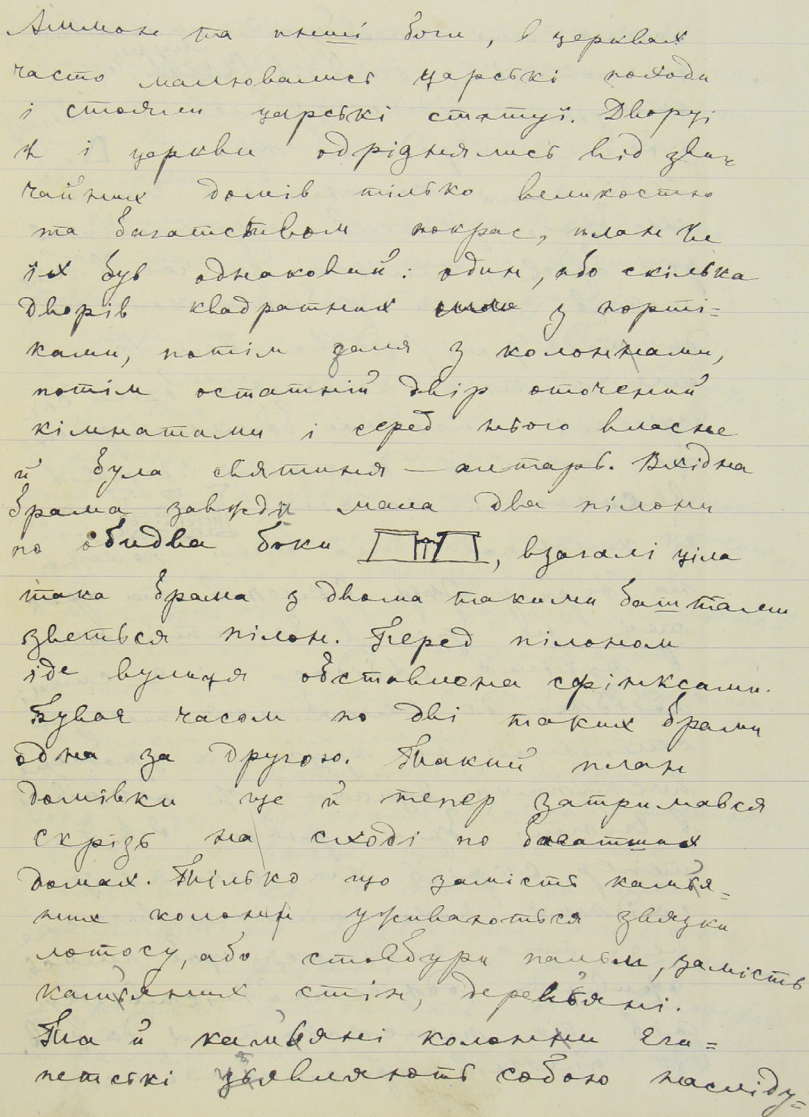 Аммон та инші боги, в церквах
часто малювались царські походи
і стояли царські статуї. Дворці
й і церкви одрізнялись від зви-
чайних домів тілько великостю
та багатством покрас, план же
їх був однаковий: один, або скілька
дворів квадратних з порті=
ками, потім заля з колонами,
потім остатній двір оточений
кімнатами і серед нього власне
й була святиня — алтарь. Вхідна
брама завжди мала два пілони
по обидва боки , взагалі ціла
така брама з двома такими баштами
зветься пілон. Перед пілоном
іде вулиця обставлена сфінксами.
Буває часом по дві таких брами
одна за другою. Такий план
домівки ще й тепер затримався
скрізь на сході по багатших
домах. Тілько що замість камъя=
них колон уживаються звязки
лотосу, або стовбури пальм, замість
камъяних стін, деревъяні.
Та й камъяні колони Еги=
петські зъявляють собою насліду=